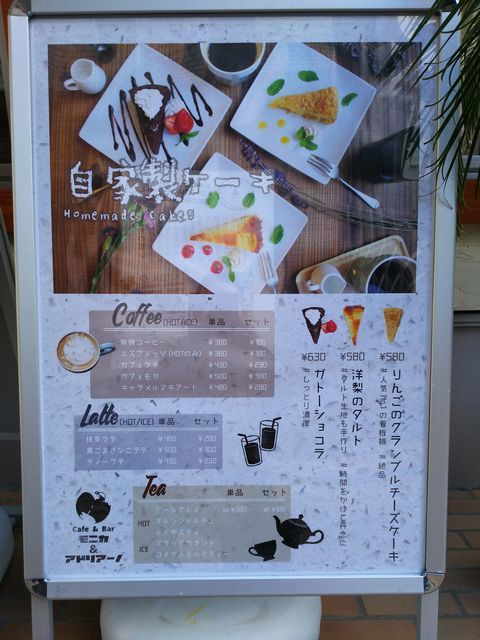 自家製ケーキ
Homemade Cakes
Coffee (HOT/ICE) 単品 セット
有機コーヒー ¥380 ¥180
エスプレッソ (HOTのみ) ¥380 ¥180
カフェラテ ¥430 ¥230
カフェモカ ¥500 ¥300
キャラメルマキアート ¥480 ¥280
¥630 ¥580 ¥580
りんごのクランブルチーズケーキ
#人気No.1の看板娘 #絶品
洋梨のタルト
#タルト生地も手作り #時間をかけて丹念に
ガトーショコラ
#しっとり濃厚
Latte (HOT/ICE) 単品 セット
抹茶ラテ ¥480 ¥280
黒ごまきなこラテ ¥500 ¥300
ティーラテ ¥430 ¥230
Tea 単品 セット
アールグレイ
HOT
ルイボスティ
ICE
ロイヤルミルクティー
Cafe & Bar
モニカ
&
アドリアーノ